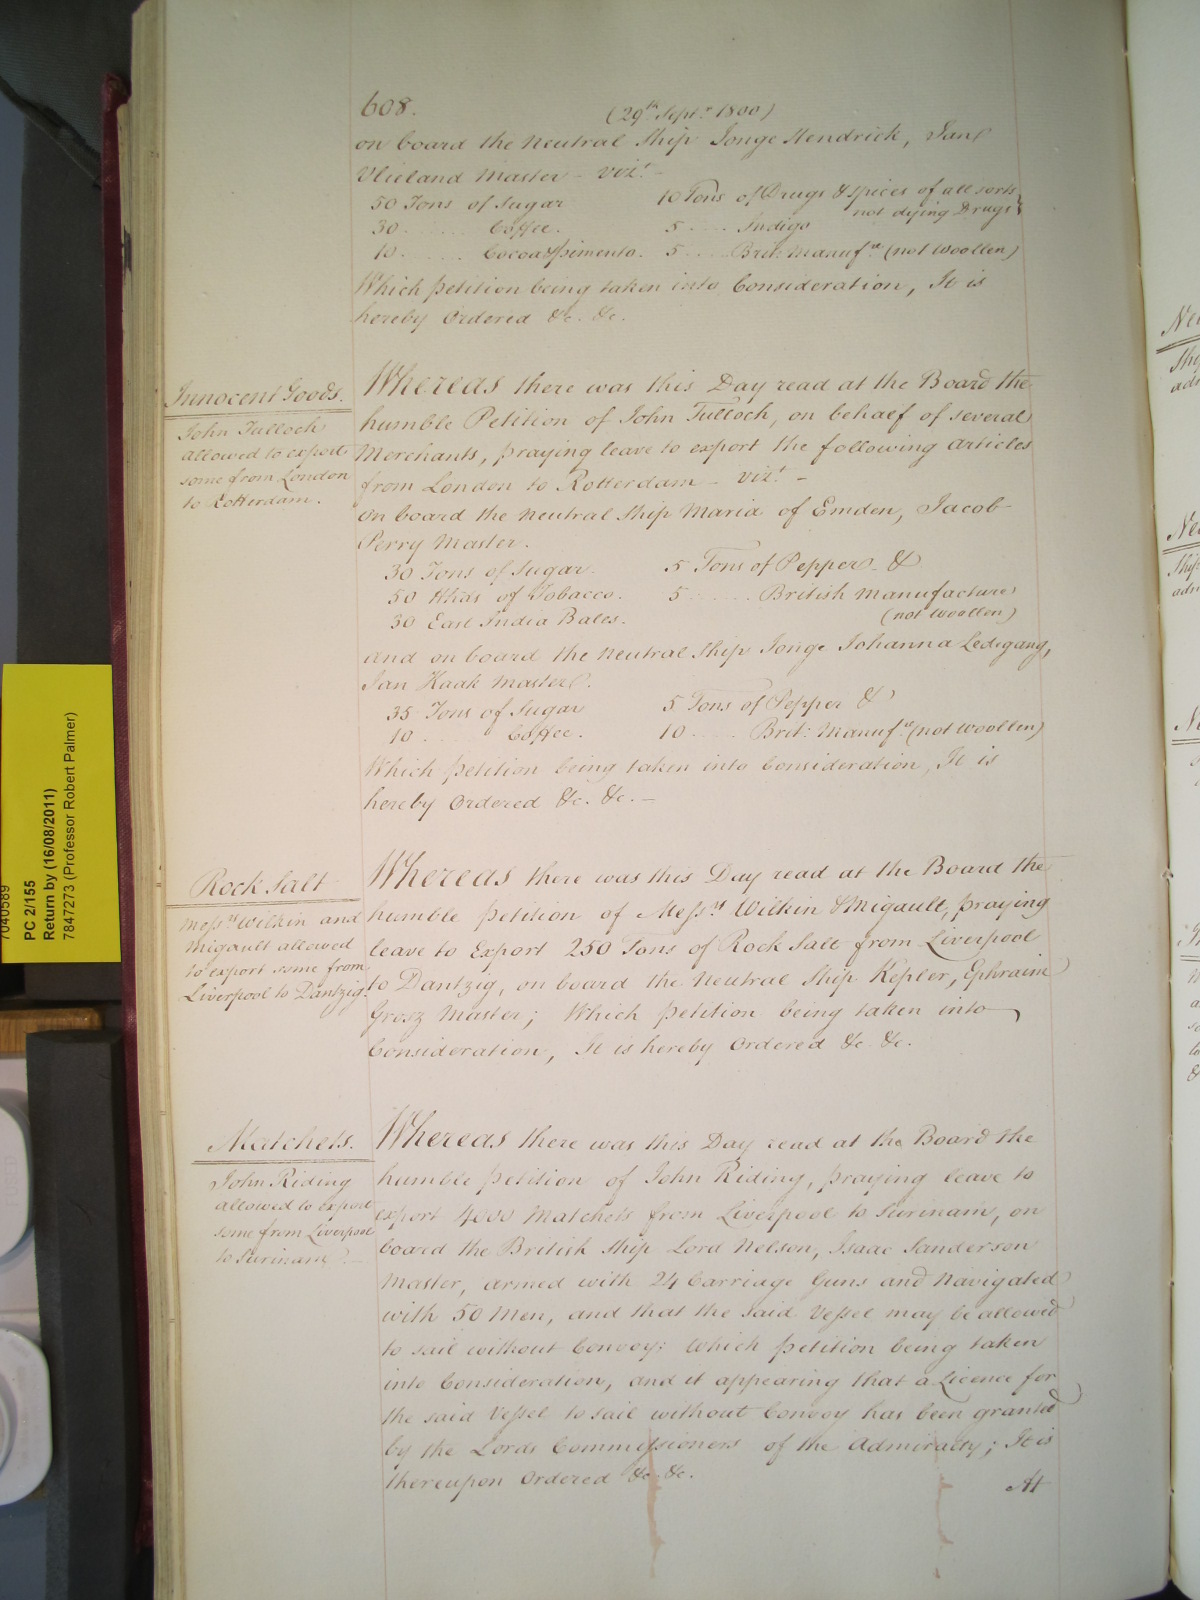 608.
(29th Septr 1800)
on board the Neutral Ship Jonge Hendrick, Jan
Vlieland Master - vizt. -
50 Tons of Sugar 10 Tons of Drugs & Spices of all sorts
not dying Drugs
30 ...... Coffee. 5 .... Indigo
10 ...... Cocoa & pimento. 5 .... Brit: Manufre (not Woollen)
Which petition being taken into Consideration, It is
hereby Ordered &c. &c.
Innocent Goods.
John Tulloch
allowed to export
some from London
to Rotterdam.
Whereas there was this Day read at the Board the
humble Petition of John Tulloch, on behalf of several
Merchants, praying leave to export the following articles
from London to Rotterdam - vizt. -
on board the Neutral Ship Maria of Emden, Jacob
Perry Master.
30 Tons of Sugar. 5 Tons of Pepper. &
50 Hhds of Tobacco. 5 ...... British Manufactures
30 East India Bales. (not Woollen)
and on board the Neutral Ship Jonge Johanna Ledegang,
Jan Kaak Master.
35 Tons of Sugar 5 Tons of Pepper &
10 ...... Coffee. 10 ..... Brit: Manufre (not Woollen)
Which petition being taken into Consideration, It is
hereby Ordered &c. &c. -
Rock Salt
Messrs Wilkin and
Migault allowed
to export some from
Liverpool to Dantzig.
Whereas there was this Day read at the Board the
humble petition of Messrs Wilkin & Migault, praying
leave to Export 250 Tons of Rock Salt from Liverpool
to Dantzig, on board the Neutral Ship Kepler, Ephraim
Grosz Master; Which petition being taken into
Consideration, It is hereby Ordered &c. &c.
Matchets.
John Riding
allowed to export
some from Liverpool
to Surinam. -
Whereas there was this Day read at the Board the
humble petition of John Riding, praying leave to
export 4000 Matchets from Liverpool to Surinam, on
board the British Ship Lord Nelson, Isaac Sanderson
Master, armed with 24 Carriage Guns and Navigated
with 50 Men, and that the said Vessel may be allowed
to sail without Convoy: Which petition being taken
into Consideration, and it appearing that a Licence for
the said Vessel to sail without Convoy has been granted
by the Lords Commissioners of the Admiralty; It is
thereupon Ordered &c. &c.
At
7040589
PC 2/155
Return by (16/08/2011)
7847273 (Professor Robert Palmer)